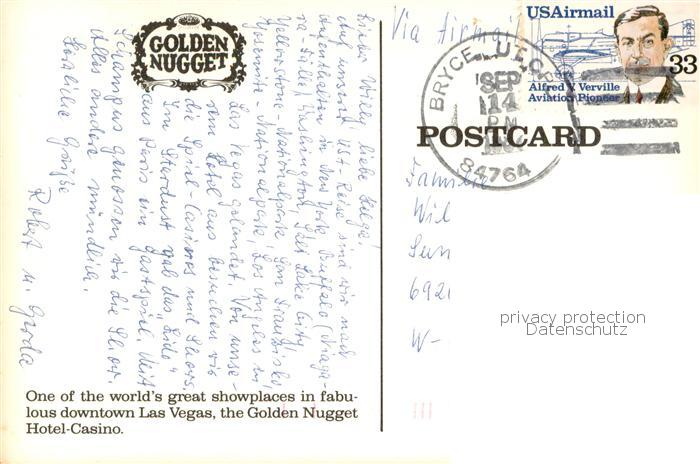 GOLDEN
NUGGET
Lieber Willy, liebe Helga!
Auf unserer USA-Reise sind wir nach
Aufenthalten in New York, Buffalo (Niaga-
ra-Fälle), Washington, Salt Lake City,
Yellowstone-Nationalpark, San Franzisko,
Yosemite-Nationalpark, Los Angeles in
Las Vegas gelandet. Von unse-
rem Hotel aus besuchen wir
die Spiel-Casinos und Shows.
Im Stardust gab das "Lido"
aus Paris ein Gastspiel. Mit
Schampus genossen wir die Show.
Alles andere mündlich.
Herzliche Grüße
Robert u. Gerda
One of the world's great showplaces in fabu-
lous downtown Las Vegas, the Golden Nugget
Hotel-Casino.
Via Airmail
USAirmail
33
Alfred V. Verville
Aviation Pioneer
BRYCE, UT
SEP
14
PM
84764
POSTCARD
Familie
Wil
692
W-
privacy protection
Datenschutz